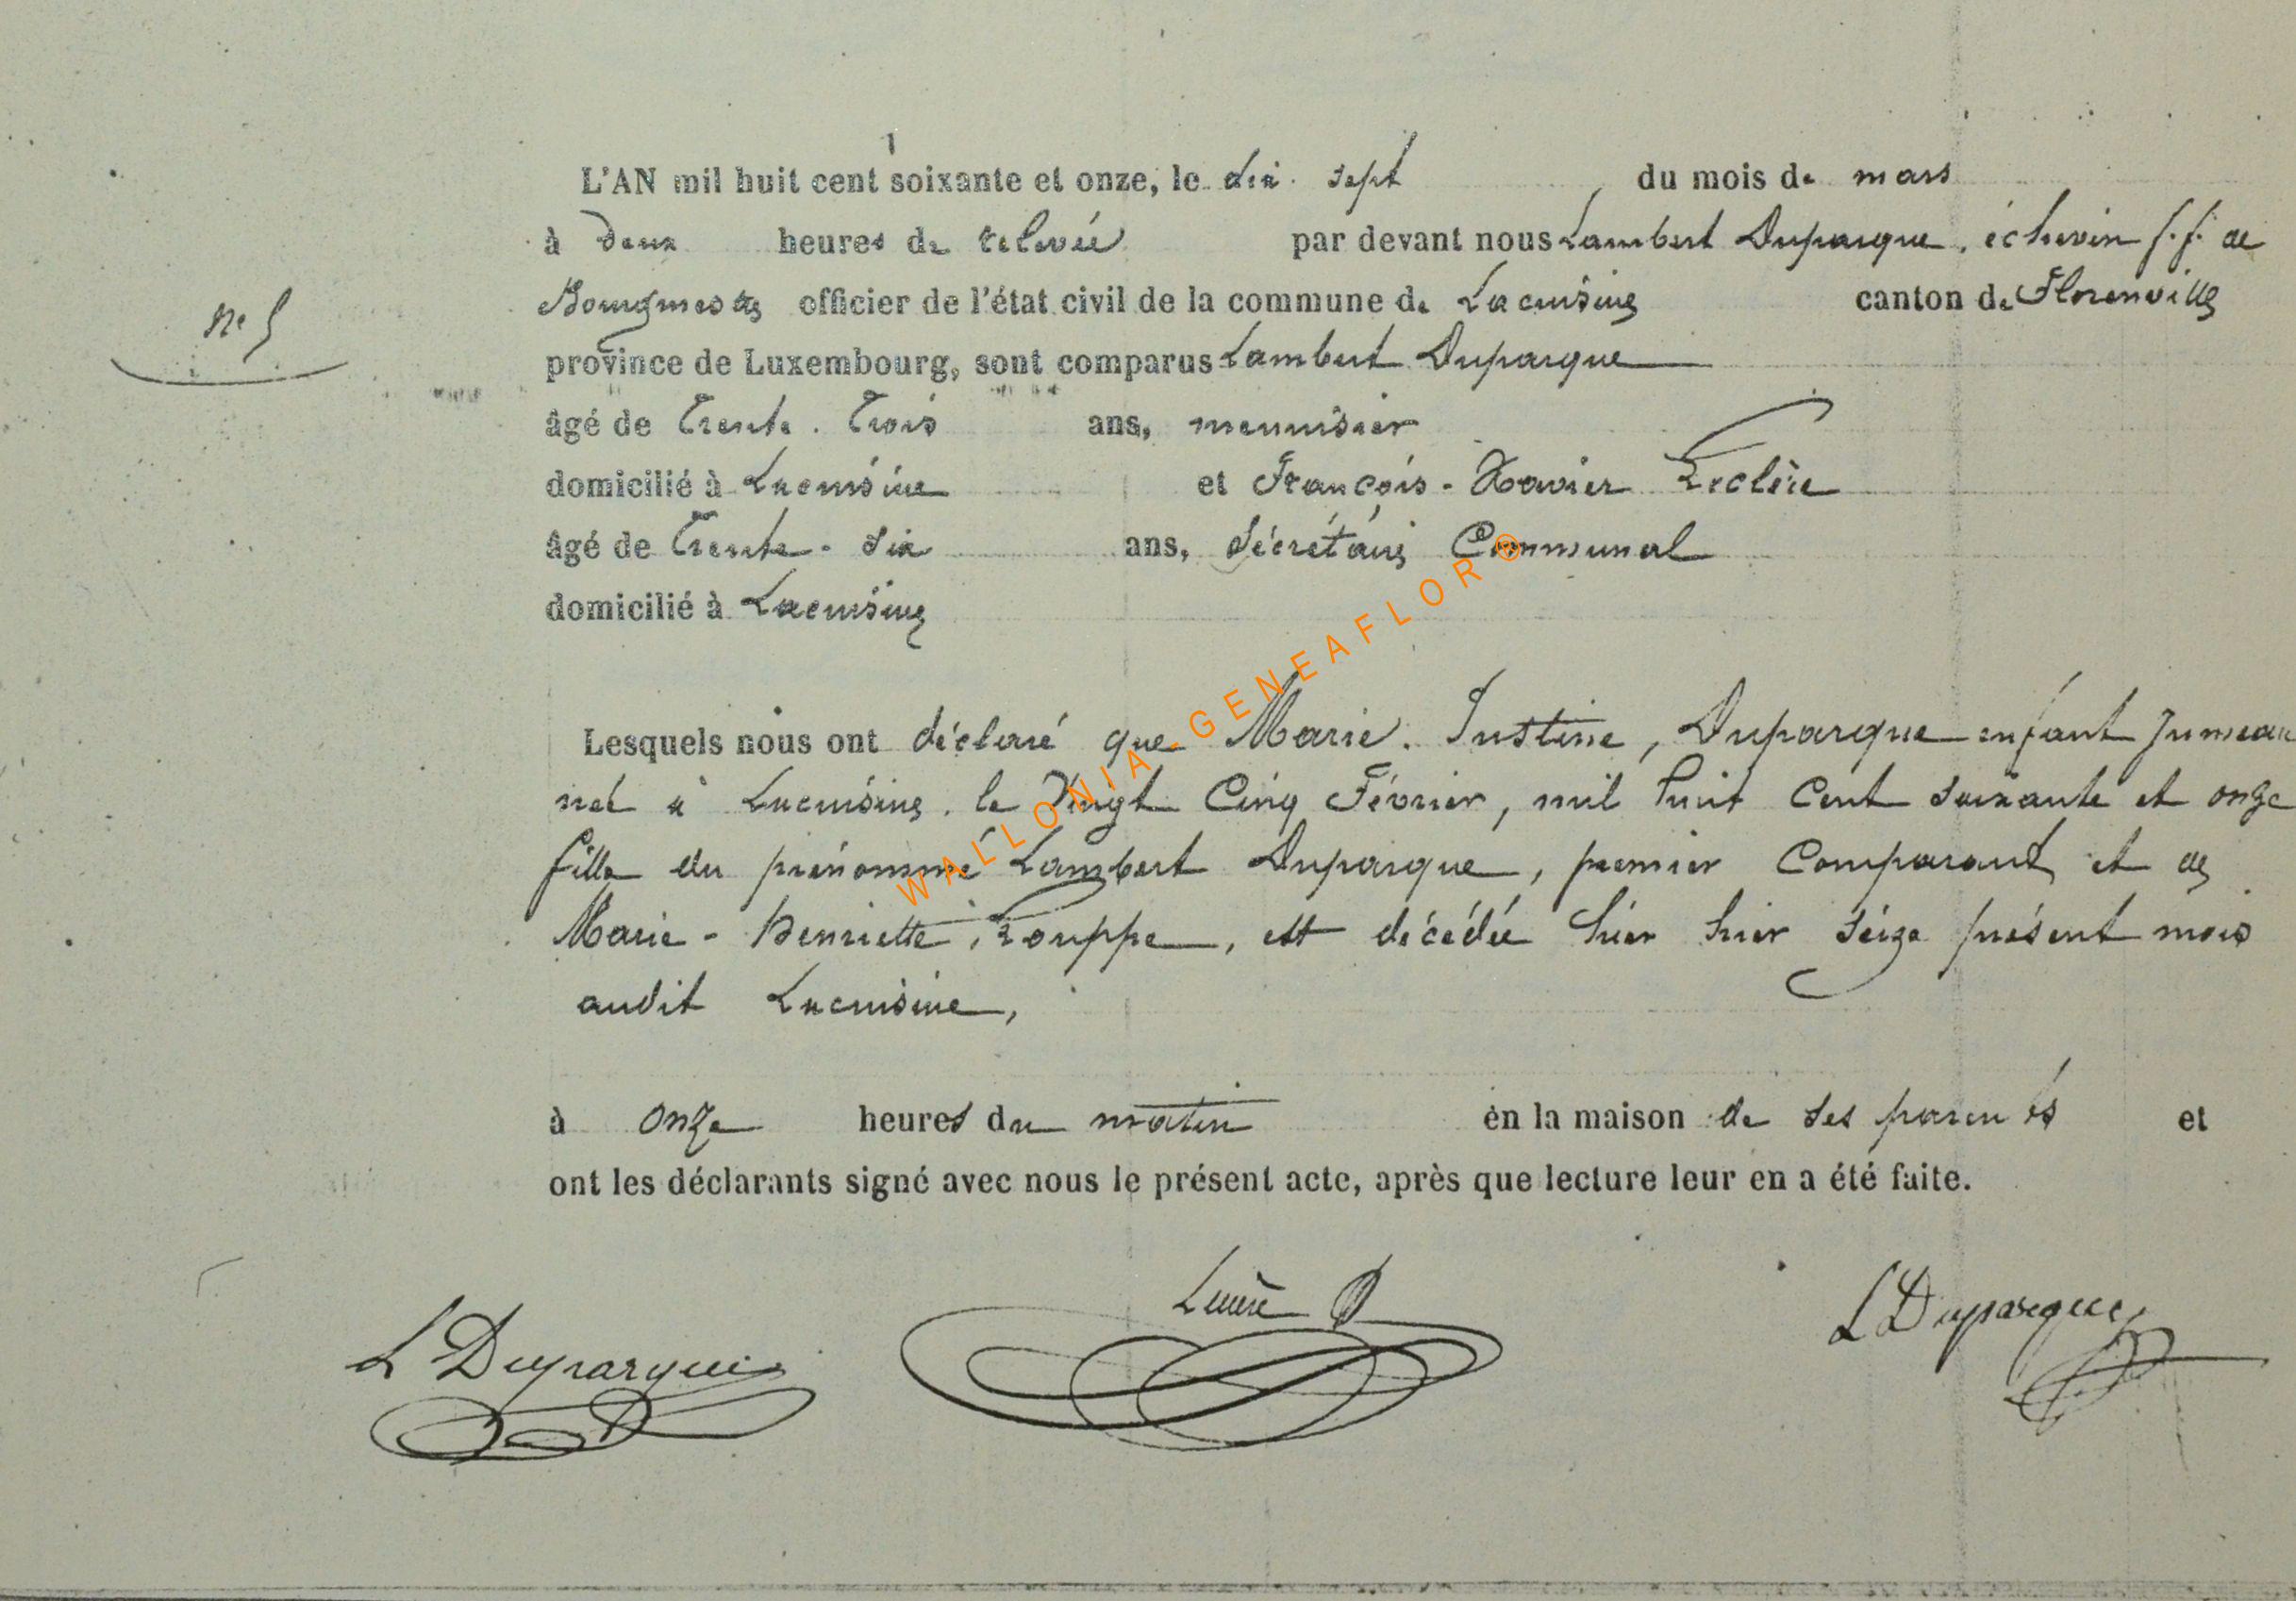 L'AN mil huit cent soixante et onze, le dix-sept du mois de mars
à deux heures de relevée par devant nous Lambert Duparque, échevin f.f. de
N° 5
Bourgmestre officier de l'état civil de la commune de Lacuisine canton de Florenville
province de Luxembourg, sont comparus Lambert Duparque
âgé de Trente-Trois ans, menuisier
domicilié à Lacuisine et François-Xavier Leclère
âgé de Trente-six ans, Sécrétaire Communal
domicilié à Lacuisine
Lesquels nous ont déclaré que Marie-Justine, Duparque enfant Jumeau
né à Lacuisine le Vingt Cinq Février, mil huit Cent soixante et onze
fille du prénommé Lambert Duparque, premier Comparant et de
Marie-Henriette, Pouppe, est décédée hier hier seize présent mois
audit Lacuisine,
à onze heures du matin en la maison de ses parents et
ont les déclarants signé avec nous le présent acte, après que lecture leur en a été faite.
L Duparque Leclère L Duparque
WALLONIA-GENEAFLOR®